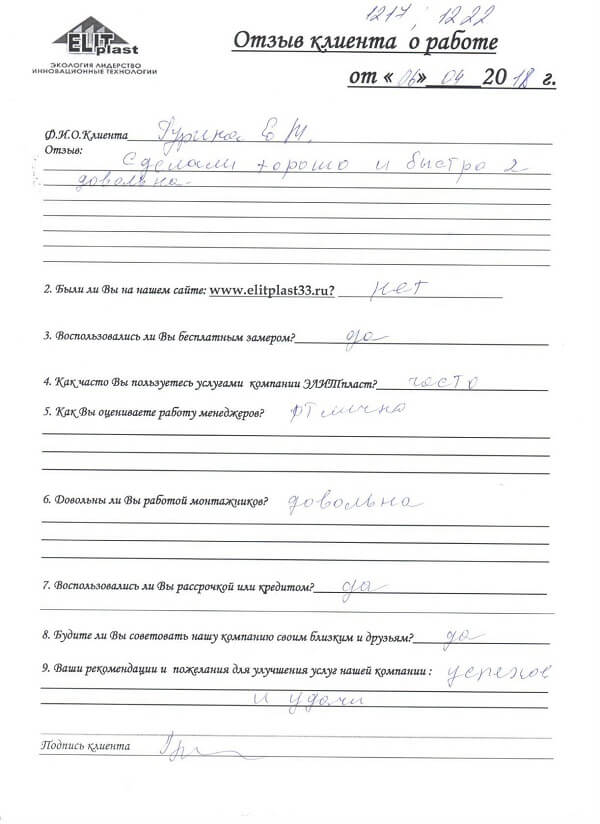 1217, 1222
ELIT plast
ЭКОЛОГИЯ ЛИДЕРСТВО
ИННОВАЦИОННЫЕ ТЕХНОЛОГИИ
Отзыв клиента о работе
от «06» 04 2018 г.
Ф.И.О.Клиента Гурина Е М.
Отзыв:
Сделали хорошо и быстро
довольна.
2. Были ли Вы на нашем сайте: www.elitplast33.ru? нет
3. Воспользовались ли Вы бесплатным замером? да
4. Как часто Вы пользуетесь услугами компании ЭЛИТпласт? часто
5. Как Вы оцениваете работу менеджеров? отлично
6. Довольны ли Вы работой монтажников? довольна
7. Воспользовались ли Вы рассрочкой или кредитом? да
8. Будите ли Вы советовать нашу компанию своим близким и друзьям? да
9. Ваши рекомендации и пожелания для улучшения услуг нашей компании : успехов
и удачи
Подпись клиента